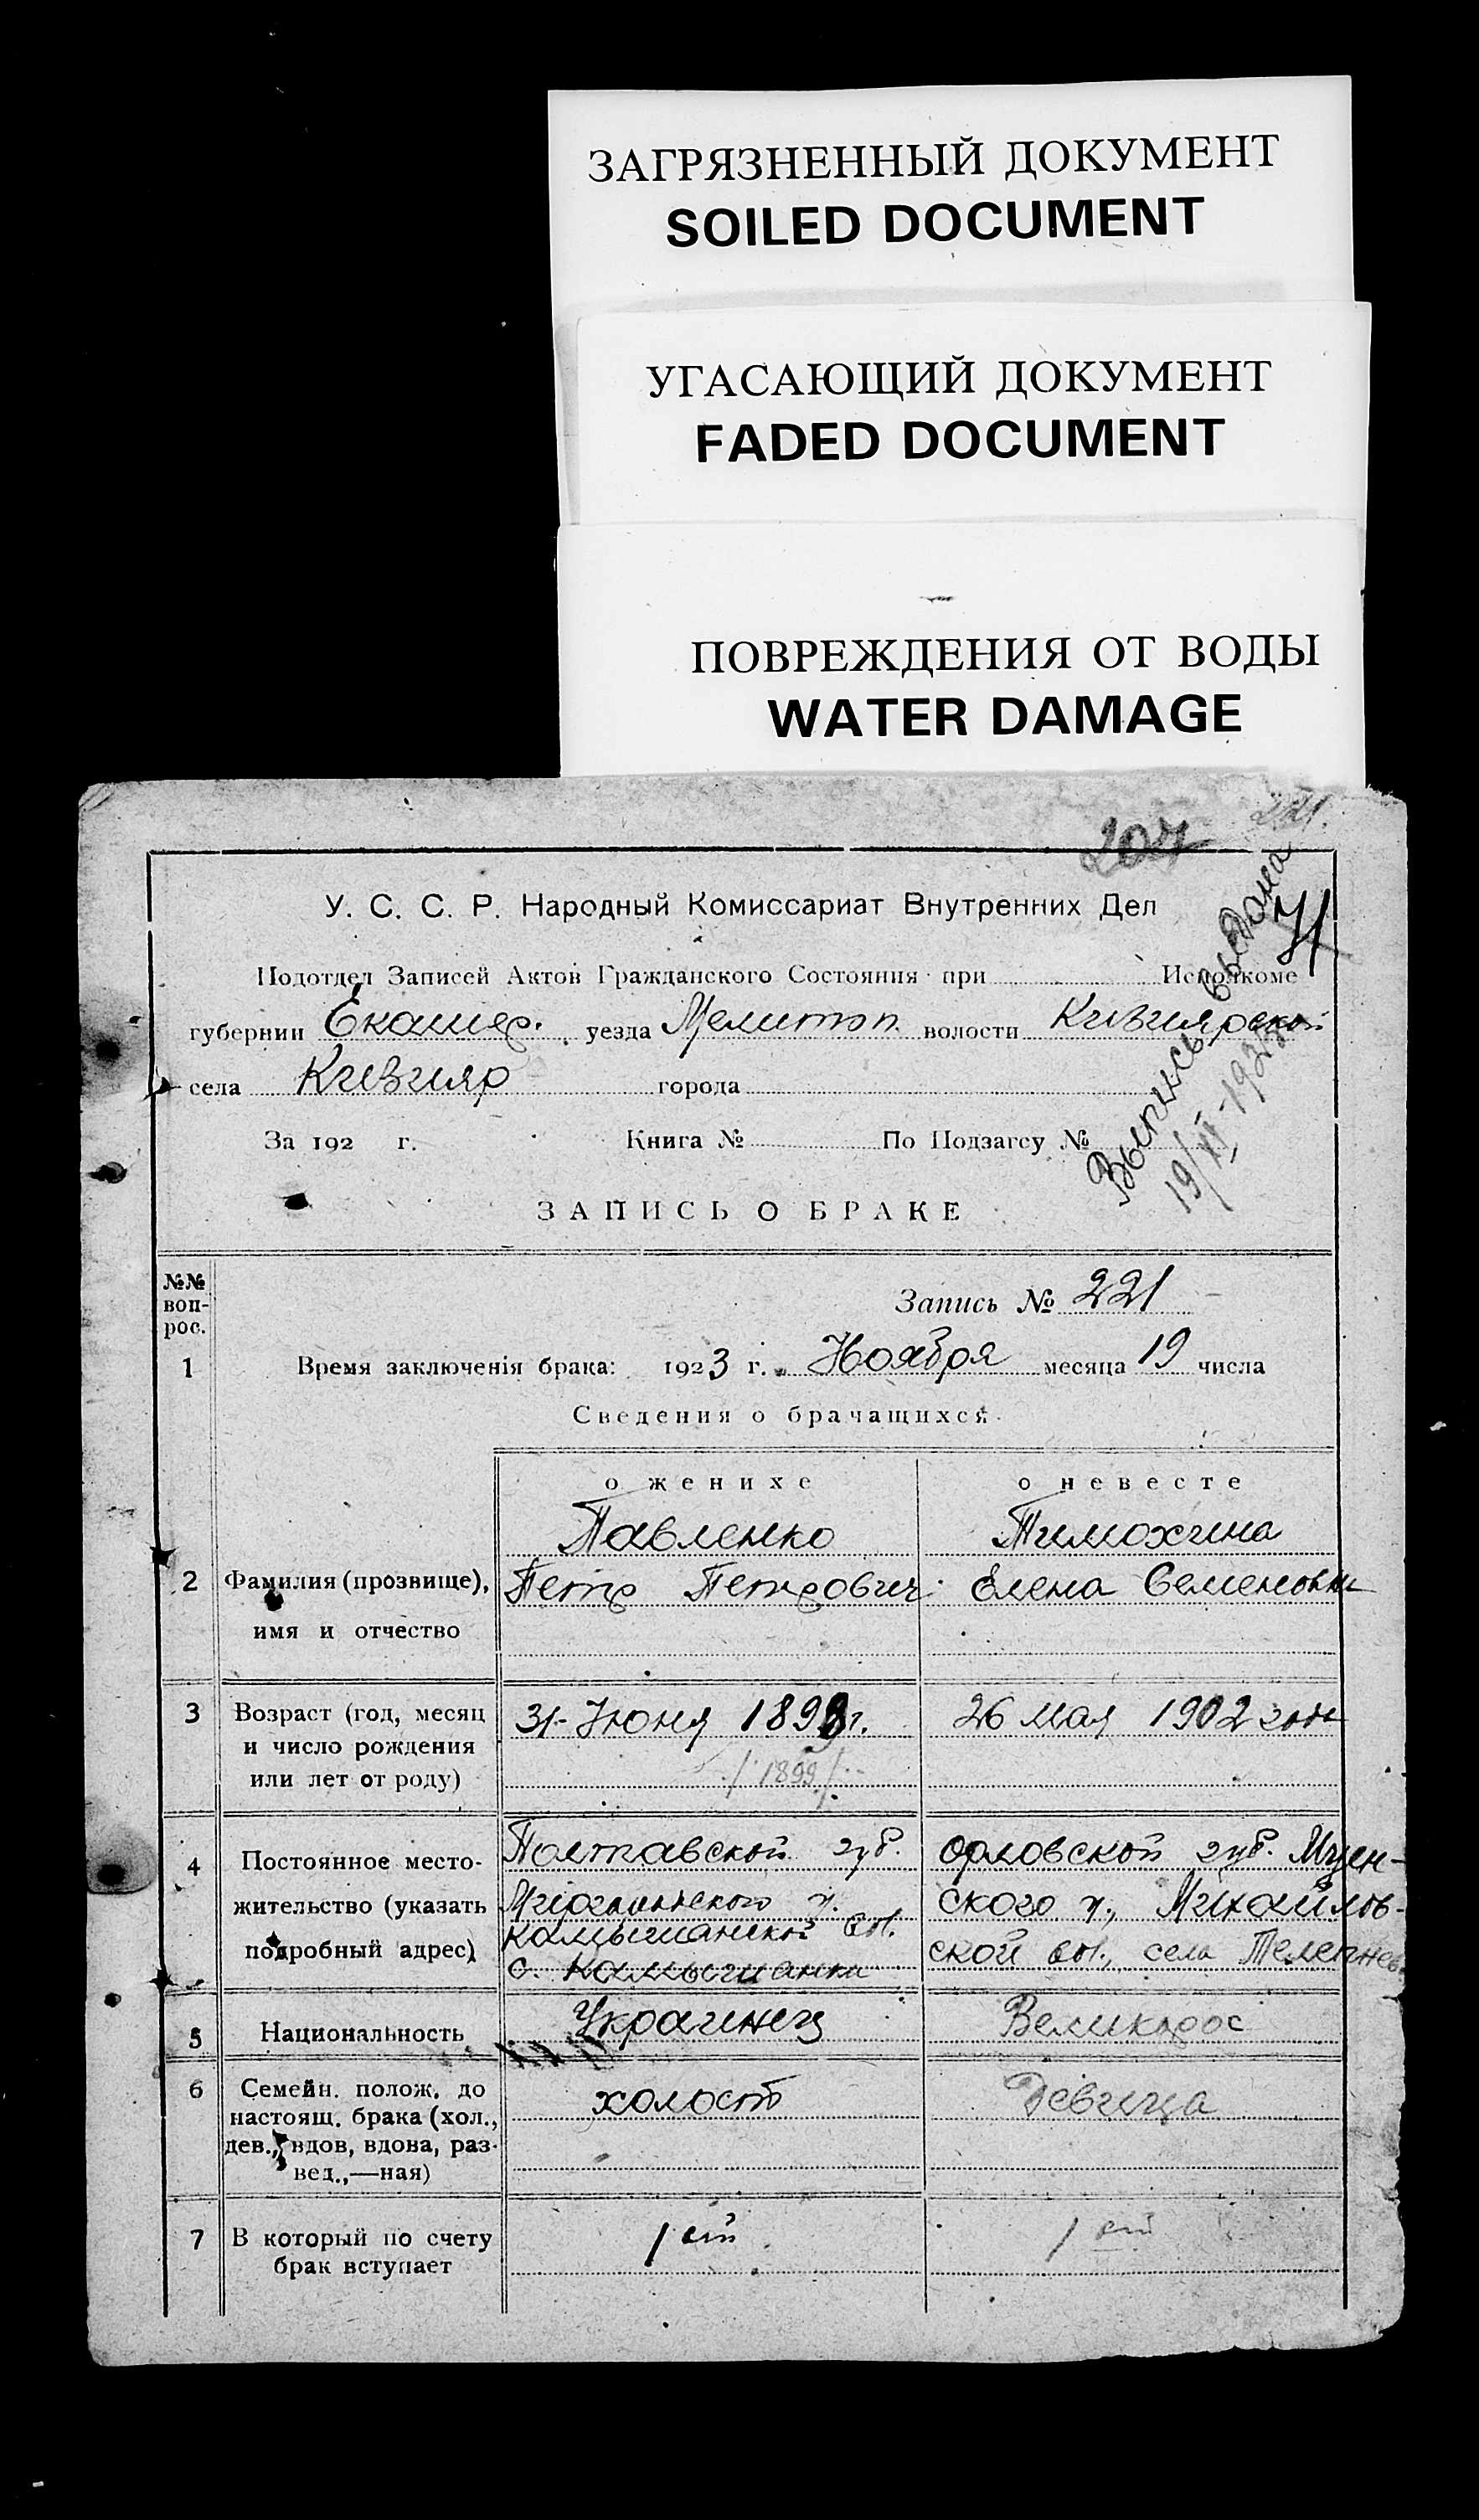 ЗАГРЯЗНЕННЫЙ ДОКУМЕНТ
SOILED DOCUMENT
УГАСАЮЩИЙ ДОКУМЕНТ
FADED DOCUMENT
ПОВРЕЖДЕНИЯ ОТ ВОДЫ
WATER DAMAGE
221.
207
71
У. С. С. Р. Народный Комиссариат Внутренних Дел
Подотдел Записей Актов Гражданского Состояния при Исполкоме
губернии Екатер. уезда Мелитоп. волости Кизиярской
села Кизияр города
За 192 г. Книга № По Подзагсу №
Выпись выдана
19/XI-1923
ЗАПИСЬ О БРАКЕ
№№ воп-рос.
Запись № 221
1 Время заключенія брака: 1923 г. Ноября месяца 19 числа
Сведения о брачащихся
о женихе о невесте
Павленко Тимохина
2 Фамилия (прозвище), Петр Петрович Елена Семеновна
имя и отчество
3 Возраст (год, месяц 31-Июня 1899г. 26 Мая 1902 года
и число рождения
или лет от роду) /1899/
4 Постоянное место- Полтавской губ. Орловской губ. Мцен-
жительство (указать Миргородского у. ского у., Михайлов-
подробный адрес) Камышанской вол. ской вол., села
с. Камышанки
5 Национальность Украинец Великорос
6 Семейн. полож. до холост Девица
настоящ. брака (хол.,
дев., вдов, вдова, раз-
вед.,—ная)
7 В который по счету 1 ый 1 ый
брак вступает